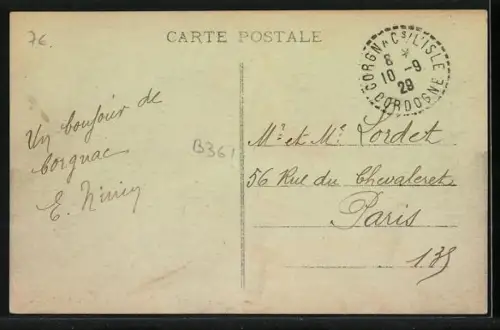 7€
CARTE POSTALE
CORGNAC S/L'ISLE
8 *
10 -9
29
DORDOGNE
Un bonjour de
Corgnac
E.
B361
Mr et Me Lordet
56 Rue du Chevaleret
Paris
13e